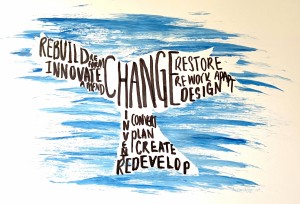 REBUILD
INNOVATE
AMEND
CHANGE
RESTORE
REWORK
DESIGN
CONVERT
PLAN
CREATE
REDEVELOP